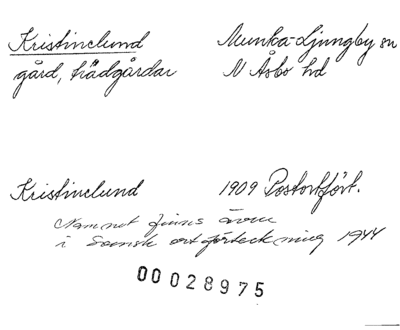 Kristinelund Munka-Ljungby sn
gård, trädgårdar N Åsbo hd
Kristinelund 1909 Postortfört.
Namnet finns även
i Svensk ortförteckning 1944
00028975